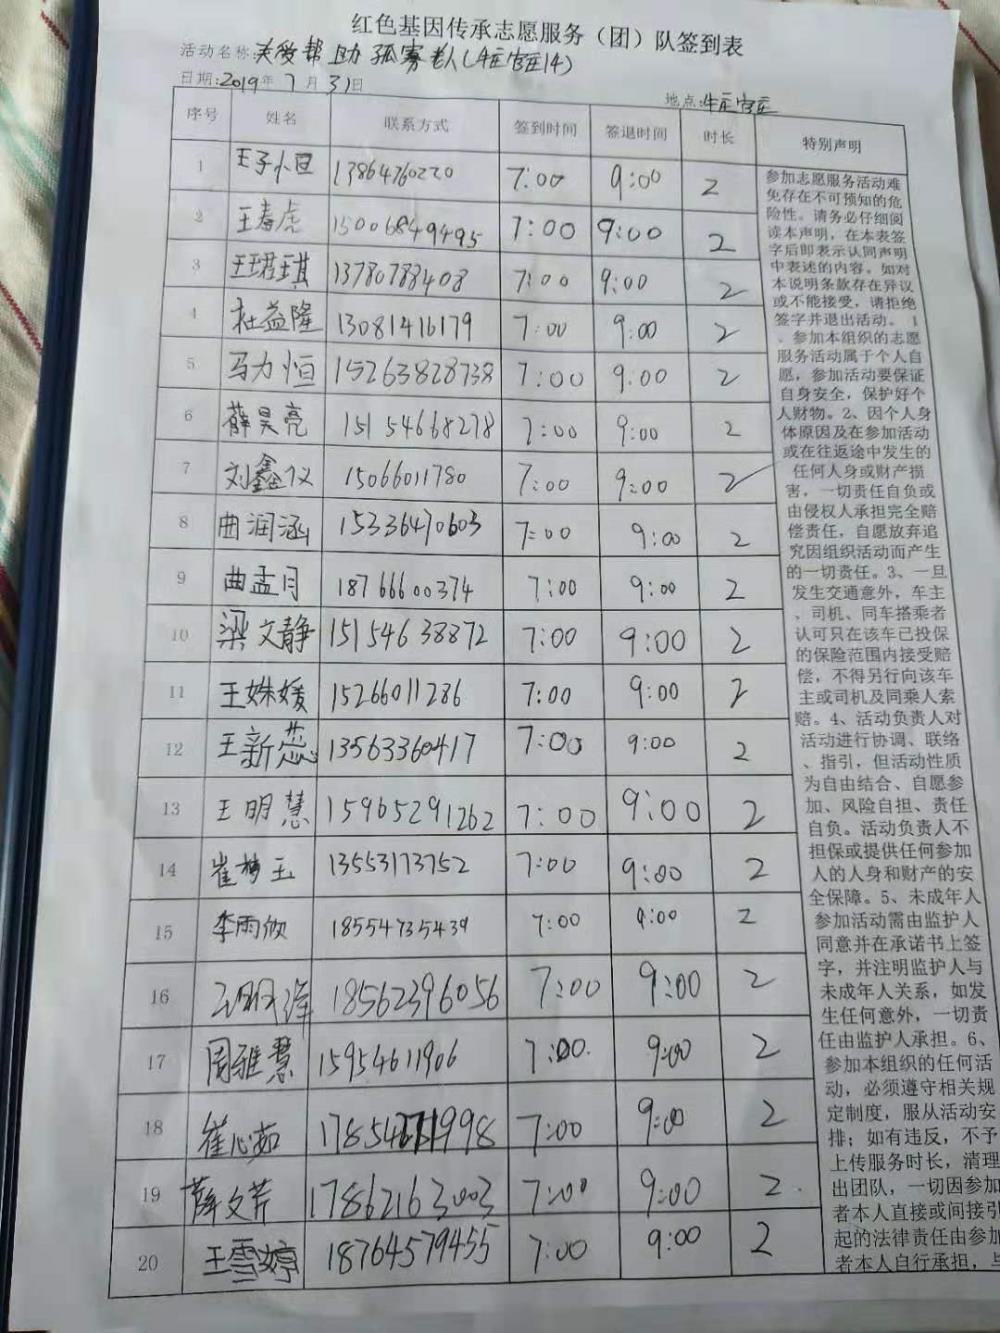 红色基因传承志愿服务（团）队签到表
活动名称:关爱帮助孤寡老人(牛庄官庄14)
日期:2019年7月31日 地点:牛庄官庄
序号 姓名 联系方式 签到时间 签退时间 时长 特别声明
1 王子小旦 13864760220 7:00 9:00 2
2 王春虎 15006849495 7:00 9:00 2
3 王珺琪 13780788408 7:00 9:00 2
4 杜益隆 13081416179 7:00 9:00 2
5 马力恒 15263828738 7:00 9:00 2
6 薛昊亮 15154668278 7:00 9:00 2
7 刘鑫仪 15066011780 7:00 9:00 2
8 曲润涵 15336470603 7:00 9:00 2
9 曲孟月 18766600374 7:00 9:00 2
10 梁文静 15154638872 7:00 9:00 2
11 王姝媛 15266011286 7:00 9:00 2
12 王新蕊 13563360417 7:00 9:00 2
13 王明慧 15965291262 7:00 9:00 2
14 崔梦玉 13553173752 7:00 9:00 2
15 李雨欣 18554735439 7:00 9:00 2
16 18562396056 7:00 9:00 2
17 周雅慧 15954611906 7:00 9:00 2
18 崔心茹 7:00 9:00 2
19 薛文芹 17862163003 7:00 9:00 2
20 王雪婷 18764579455 7:00 9:00 2
参加志愿服务活动难
免存在不可预知的危
险性。请务必仔细阅
读本声明，在本表签
字后即表示认同声明
中表述的内容。如对
本说明条款存在异议
或不能接受，请拒绝
签字并退出活动。1
、参加本组织的志愿
服务活动属于个人自
愿，参加活动要保证
自身安全，保护好个
人财物。2、因个人身
体原因及在参加活动
或在往返途中发生的
任何人身或财产损
害，一切责任自负或
由侵权人承担完全赔
偿责任，自愿放弃追
究因组织活动而产生
的一切责任。3、一旦
发生交通意外，车主
、司机、同车搭乘者
认可只在该车已投保
的保险范围内接受赔
偿，不得另行向该车
主或司机及同乘人索
赔。4、活动负责人对
活动进行协调、联络
、指引，但活动性质
为自由结合、自愿参
加、风险自担、责任
自负。活动负责人不
担保或提供任何参加
人的人身和财产的安
全保障。5、未成年人
参加活动需由监护人
同意并在承诺书上签
字，并注明监护人与
未成年人关系，如发
生任何意外，一切责
任由监护人承担。6、
参加本组织的任何活
动，必须遵守相关规
定制度，服从活动安
排；如有违反，不予
上传服务时长，清理
出团队，一切因参加
者本人直接或间接引
起的法律责任由参加
者本人自行承担，与